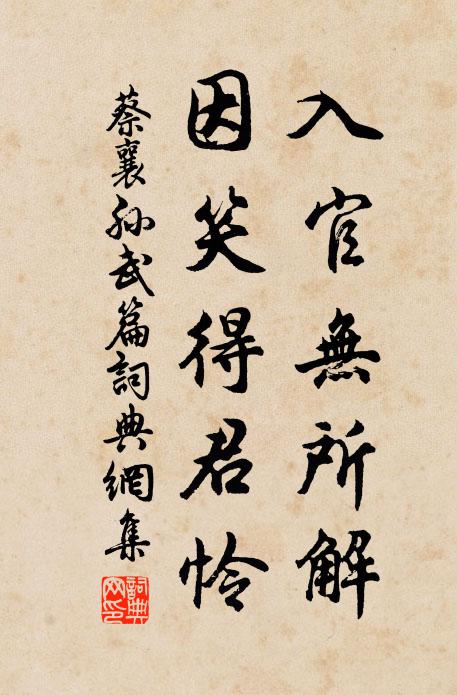 入官無所解
因笑得君怜
蔡襄孙武篇詞典網集
詞典网印